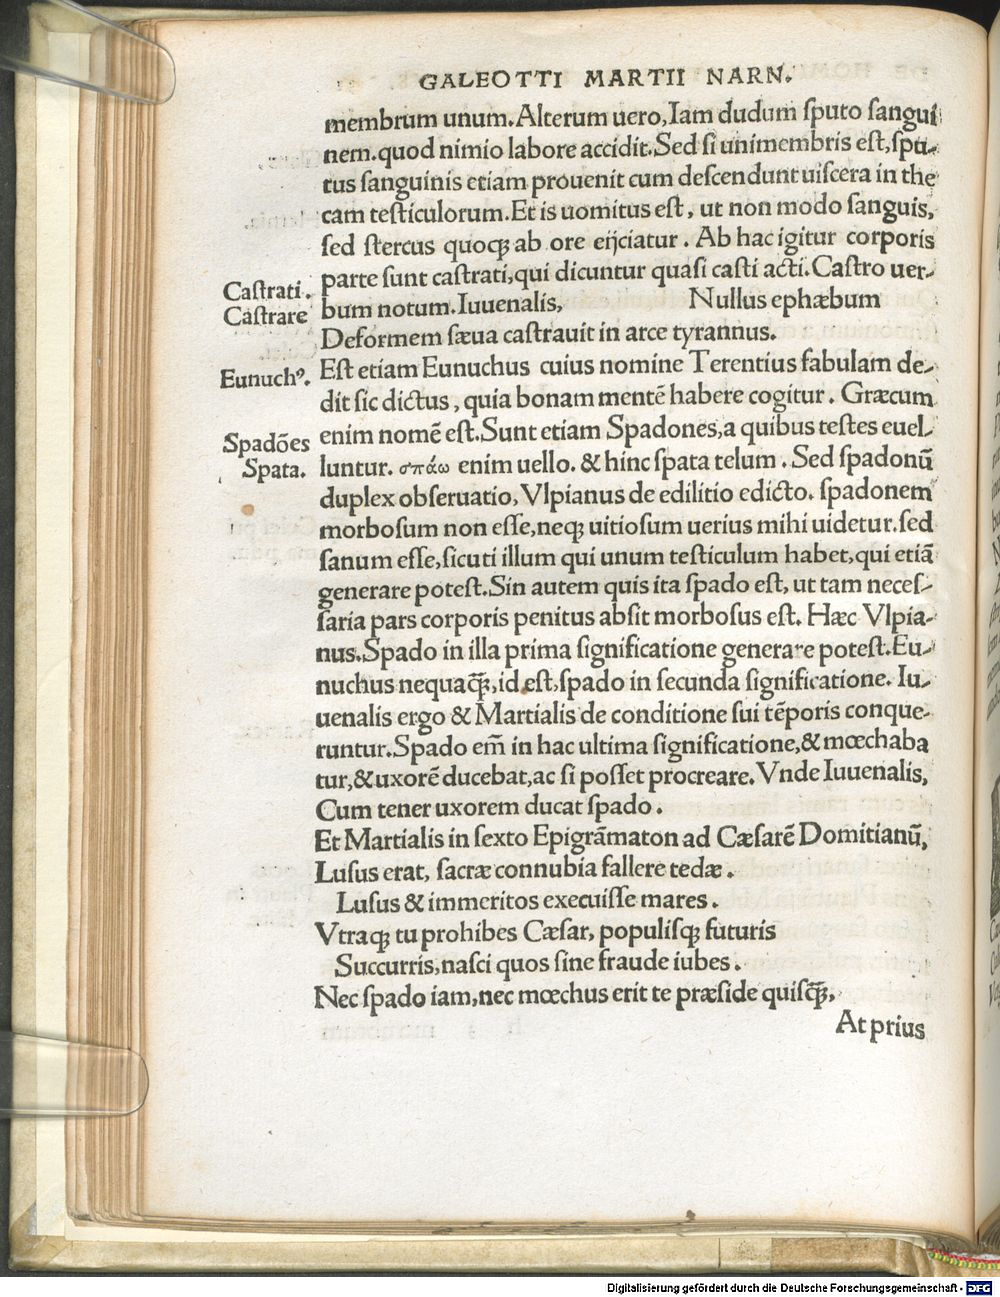 GALEOTTI MARTII NARN.
membrum unum. Alterum uero, Iam dudum ſputo ſangui
nem. quod nimio labore accidit. Sed ſi unimembris eſt, ſpu-
tus ſanguinis etiam prouenit cum deſcendunt uiſcera in the
cam teſticulorum. Et is uomitus eſt, ut non modo ſanguis,
ſed ſtercus quoqꝫ ab ore eijciatur. Ab hac igitur corporis
parte ſunt caſtrati, qui dicuntur quaſi caſti acti. Caſtro uer-
Caſtrati.
Caſtrare
bum notum. Iuuenalis, Nullus ephæbum
Deformem ſæua caſtrauit in arce tyrannus.
Eſt etiam Eunuchus cuius nomine Terentius fabulam de-
Eunuchꝰ.
dit ſic dictus, quia bonam mentē habere cogitur. Græcum
enim nomē eſt. Sunt etiam Spadones, a quibus teſtes euel-
Spadōes
Spata.
luntur. σπάω enim uello. & hinc ſpata telum. Sed ſpadonū
duplex obſeruatio, Vlpianus de edilitio edicto. ſpadonem
morboſum non eſſe, neqꝫ uitioſum uerius mihi uidetur. ſed
ſanum eſſe, ſicuti illum qui unum teſticulum habet, qui etiā
generare poteſt. Sin autem quis ita ſpado eſt, ut tam neceſ-
ſaria pars corporis penitus abſit morboſus eſt. Hæc Vlpia-
nus. Spado in illa prima ſignificatione generare poteſt. Eu-
nuchus nequaq̄ꝫ, id eſt, ſpado in ſecunda ſignificatione. Iu-
uenalis ergo & Martialis de conditione ſui tēporis conque-
runtur. Spado em̄ in hac ultima ſignificatione, & mœchaba
tur, & uxorē ducebat, ac ſi poſſet procreare. Vnde Iuuenalis,
Cum tener uxorem ducat ſpado.
Et Martialis in ſexto Epigrāmaton ad Cæſarē Domitianū,
Luſus erat, ſacræ connubia fallere tedæ.
Luſus & immeritos execuiſſe mares.
Vtraqꝫ tu prohibes Cæſar, populiſqꝫ futuris
Succurris, naſci quos ſine fraude iubes.
Nec ſpado iam, nec mœchus erit te præſide quiſq̄ꝫ,
At prius
Digitalisierung gefördert durch die Deutsche Forschungsgemeinschaft - DFG